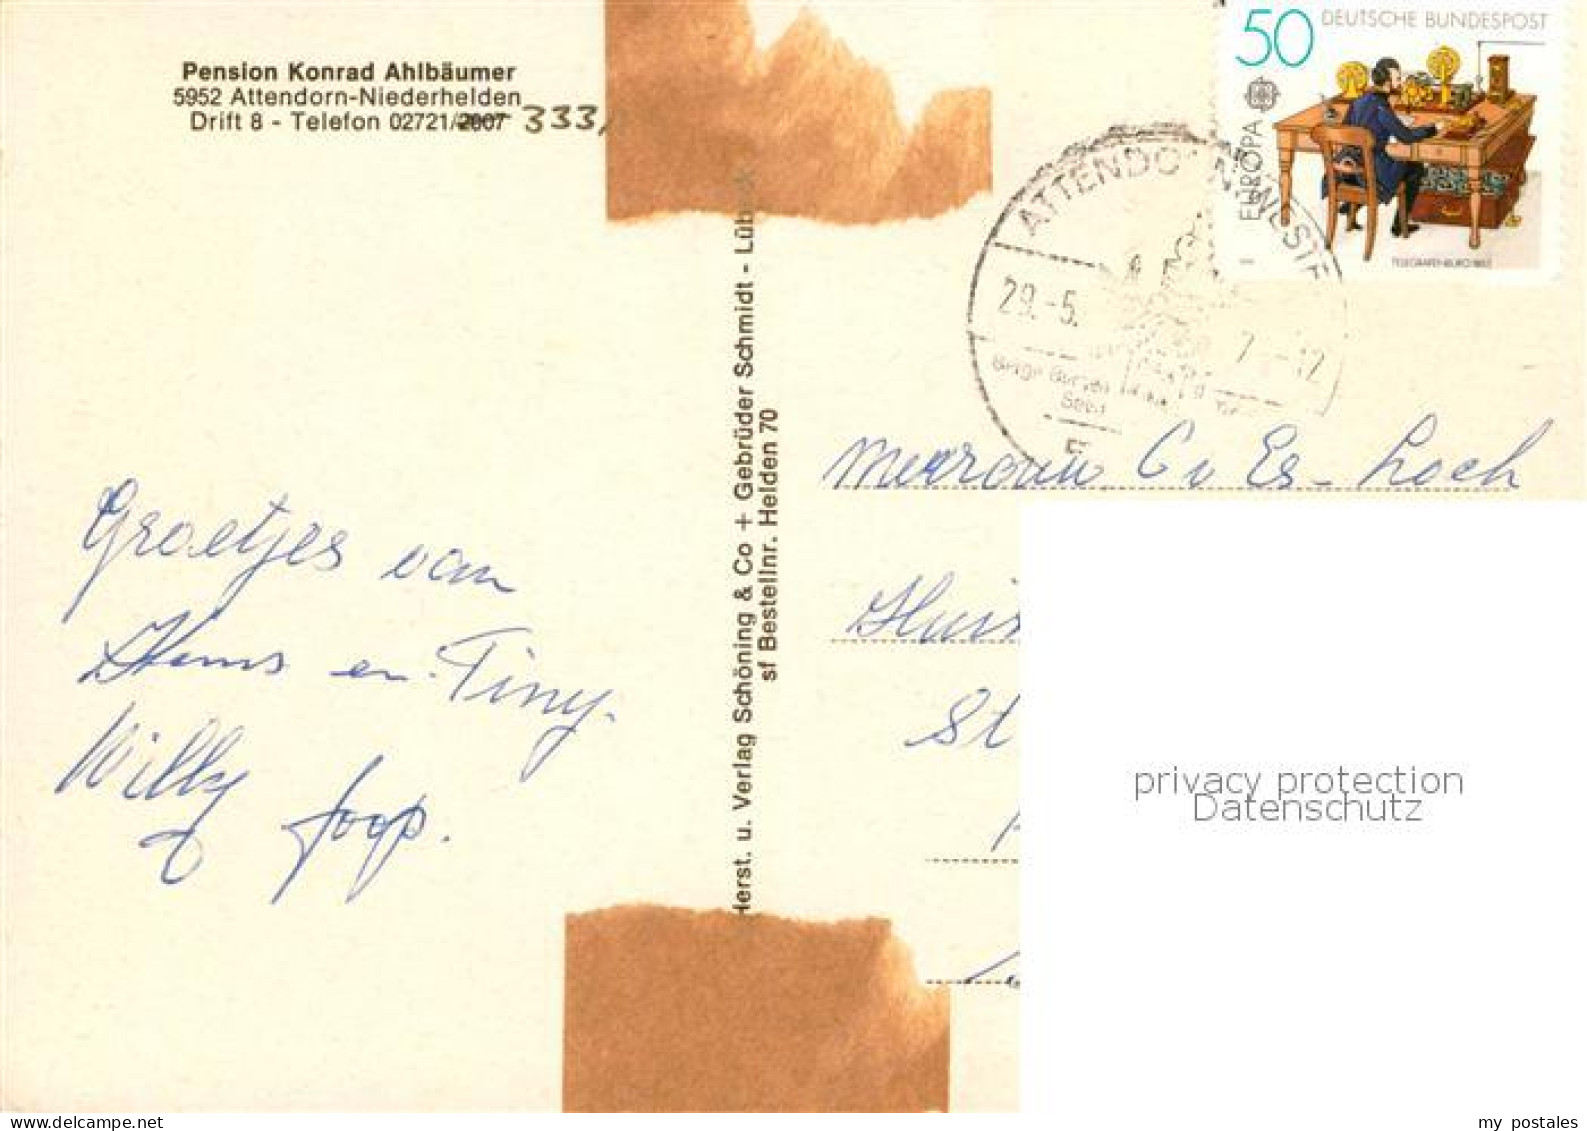 Pension Konrad Ahlbäumer
5952 Attendorn-Niederhelden
Drift 8 - Telefon 02721/2007 333
Groetjes van
Hans en Tiny.
Willy Joop.
Herst. u. Verlag Schöning & Co + Gebrüder Schmidt - Lübeck
sf Bestellnr. Helden 70
50 DEUTSCHE BUNDESPOST
EUROPA
TELEGRAFENBÜRO 1863
ATTENDORN WESTF
29.-5. -12
Mevrouw C v Es-Loch
Huis
St
privacy protection
Datenschutz
my postales